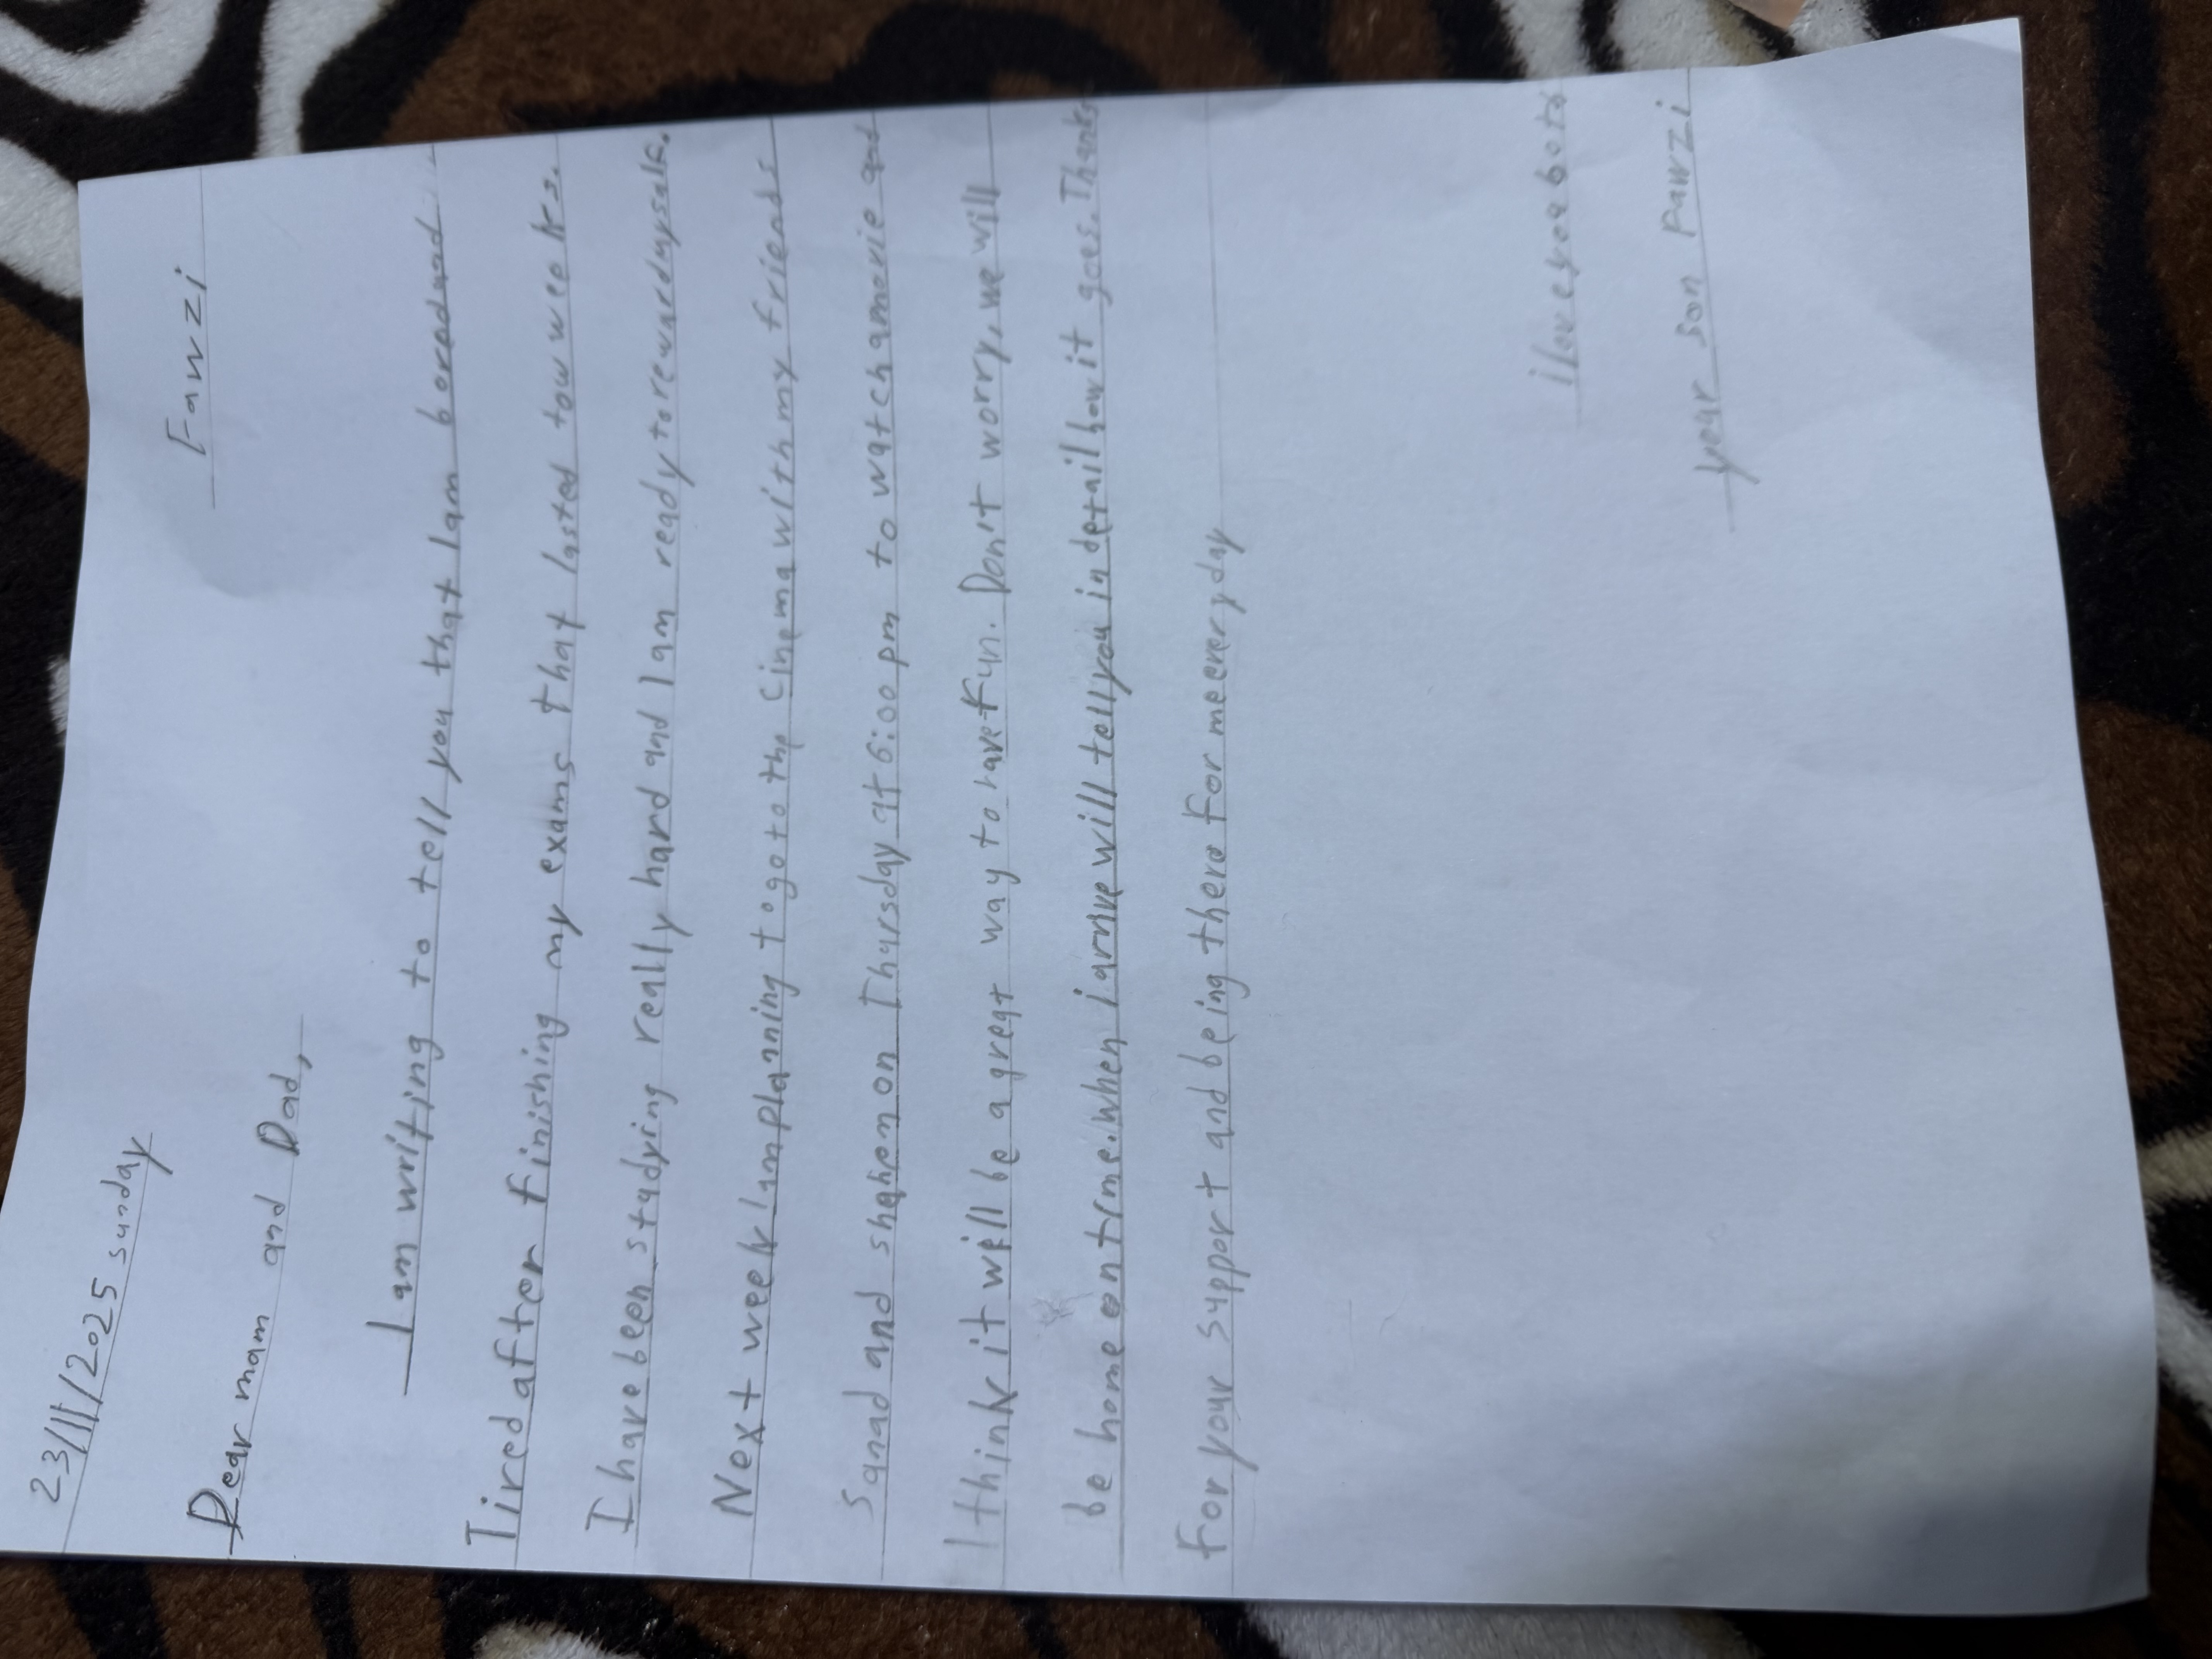 23/11/2025 sunday
Fawzi
Dear mam and Dad,
I am writing to tell you that I am bored and
Tired after finishing my exams that lasted tow weeks.
I have been studying really hard and I am ready to reward mysalf.
Next week I am planning to go to the cinema with my friends
Sanad and shahem on Thursday at 6:00 pm to watch a movie and
I think it will be a great way to have fun. Don't worry, we will
be home on time. When i arrive will tell you in detail how it goes. Thanks
For your support and being there for me every day
i love you both
your son Fawzi